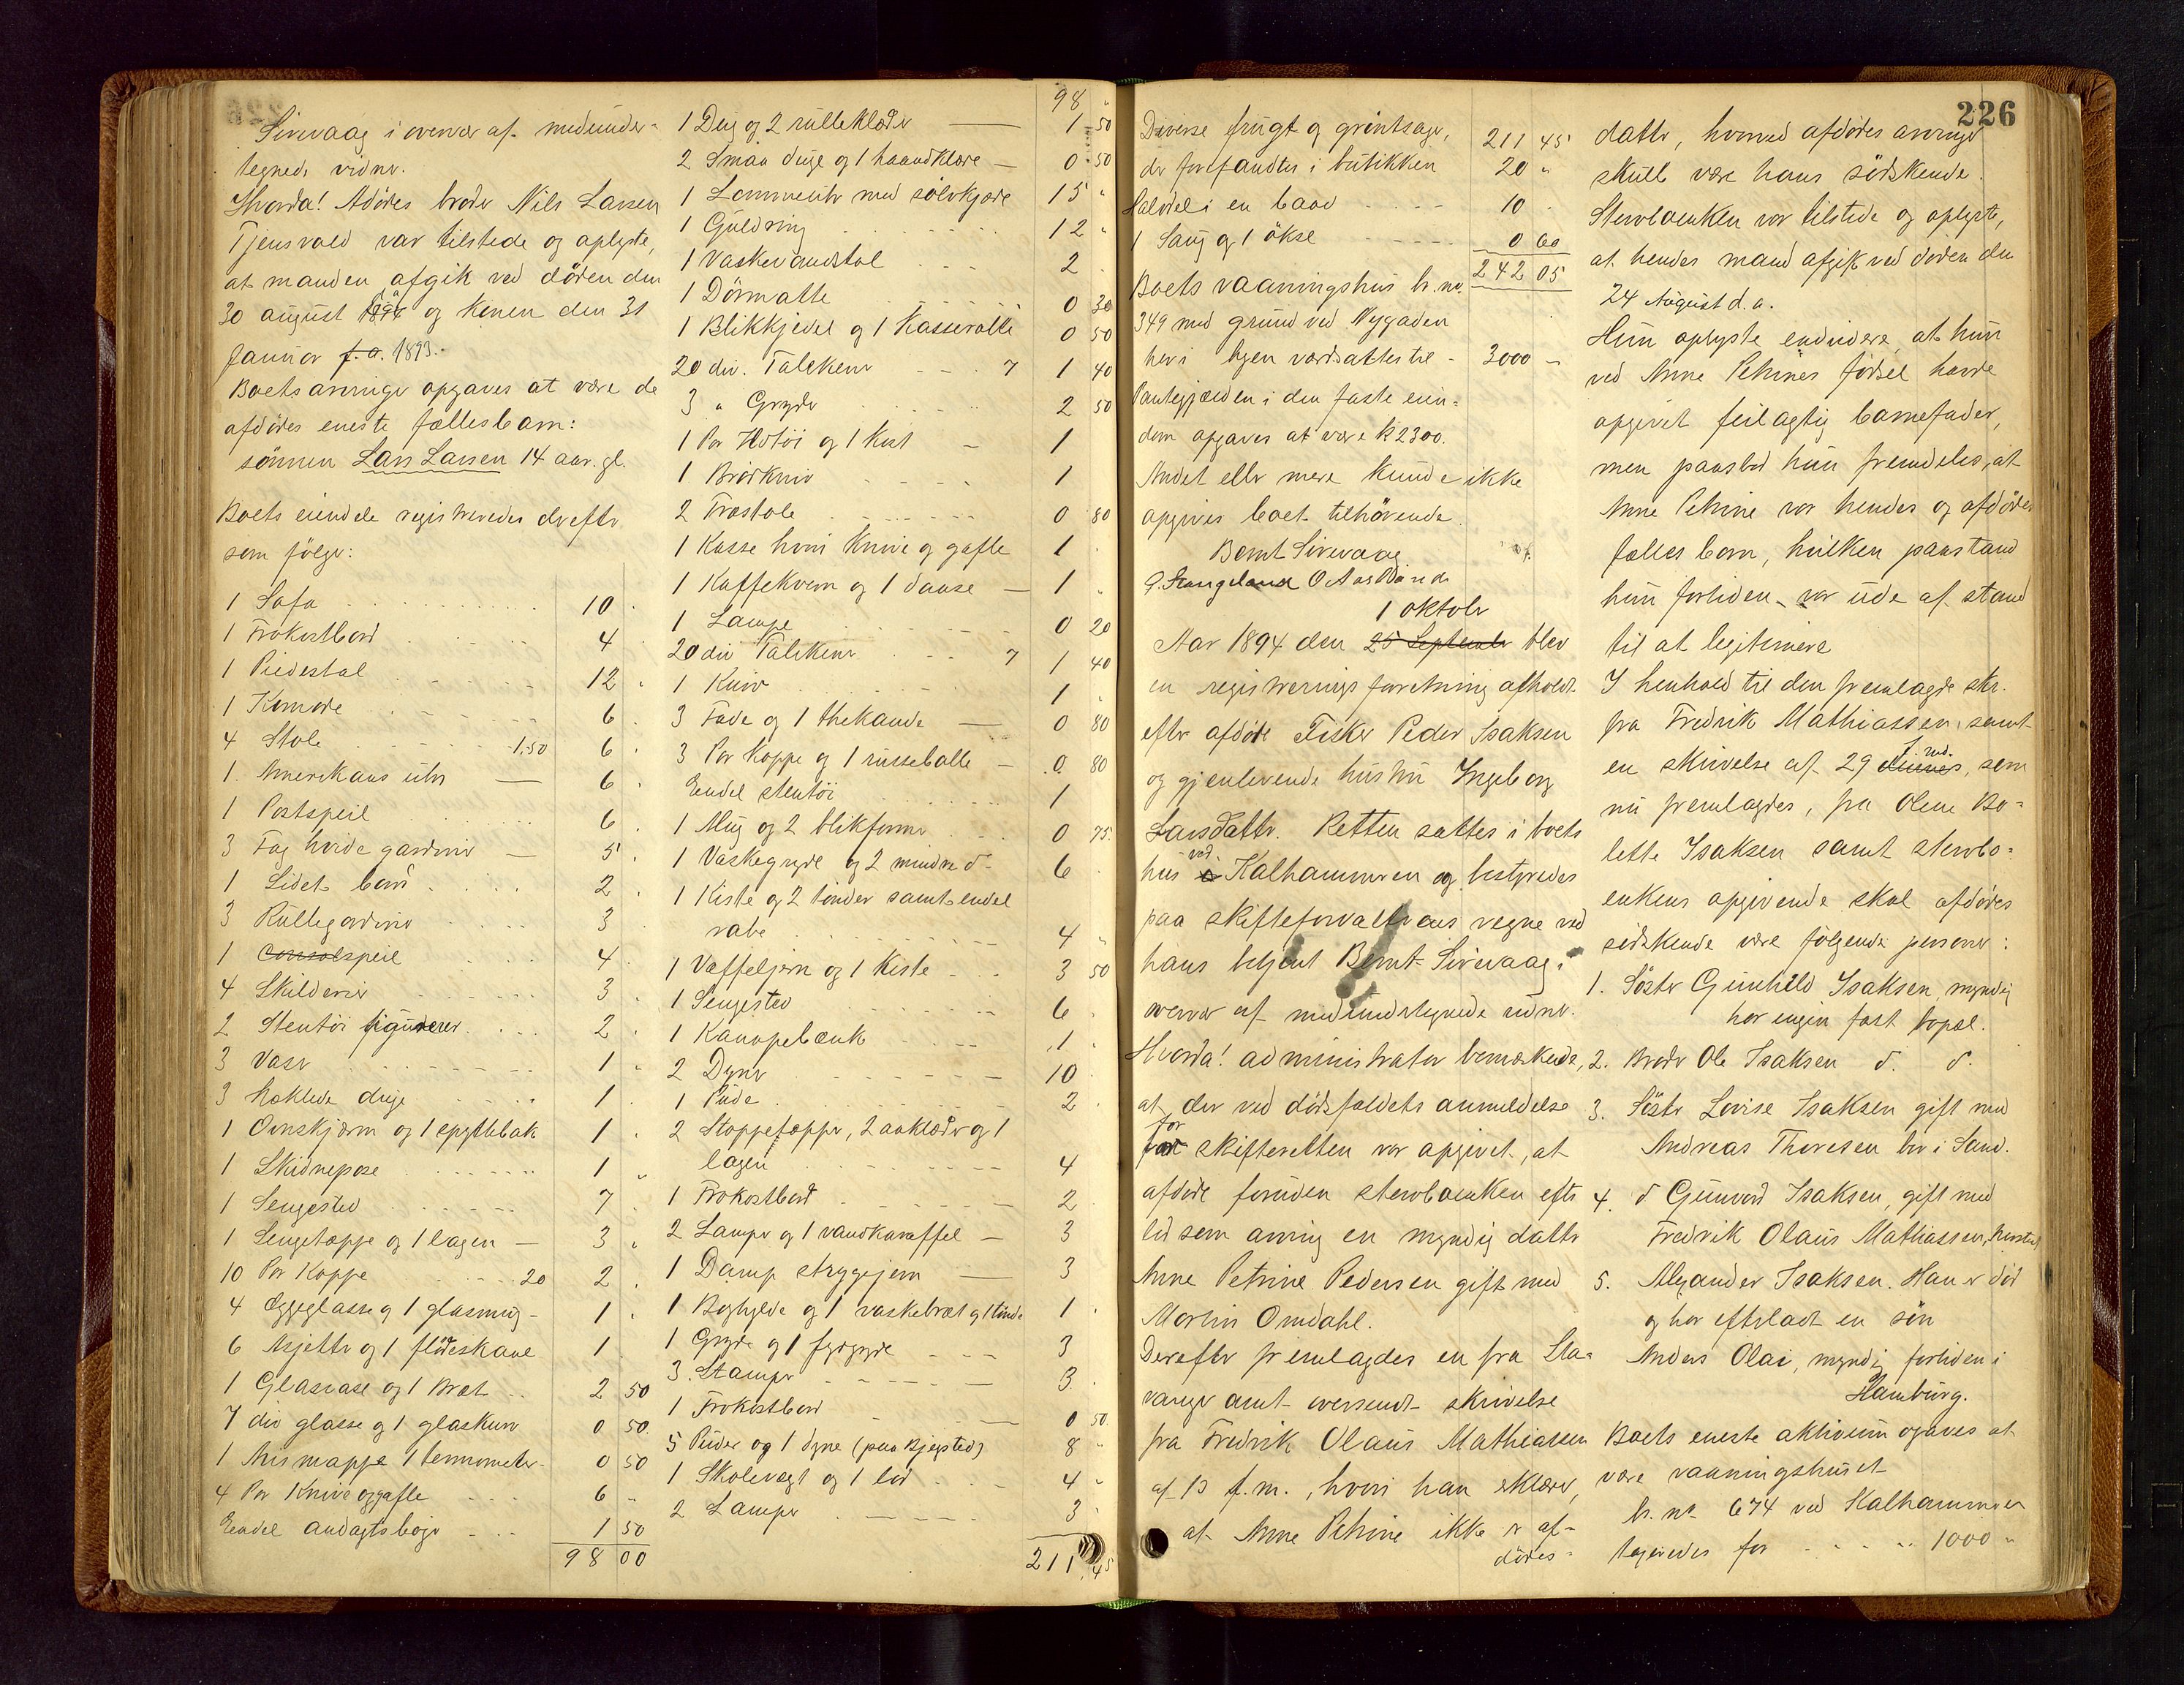 Sirevaag i overvær af medunder-
tegnede vidner.
Hvorda! Afdødes broder Nils Larsen
Tjensvold var tilstede og oplyste,
at manden afgik ved døden den
30 august 1894 og konen den 31
Januar f.a. 1893.
Boets arvinger opgaves at være de
afdødes eneste fællesbarn:
sønnen Lars Larsen 14 aar gl.
Boets eiendele registreredes derefter
som følger:
1 Sofa 10
1 Frokostbord 4
1 Piedestal 12
1 Komode 6
4 Stole 1.50 6
1 Amerikans uhr 6
1 Postspeil 6
3 Fag hvide gardiner 5
1 Lidet bord 2
3 Rullegardiner 3
1 Consolspeil 4
4 Skilderier 3
2 Stentøi figurer 2
3 Vaser 1
3 Hæklede duge 1
1 Ovnskjærm og 1 spyttebak 1
1 Skidnepose 1
1 Sengested 7
1 Sengetæppe og 1 lagen 3
10 Par Koppe 20 2
4 Æggeglasse og 1 glasmug 1
6 Asjetter og 1 flødeskaal 1
1 Glasvase og 1 Bræt 2 50
7 div glasse og 1 glaskurv 0 50
1 Avismappe 1 termometer 0 50
4 Par Knive og gafle 6
Endel andagtsbøger 1 50
98 00
98
1 Dug og 2 rulleklæder 1 50
2 Smaa duge og 1 haandklæde 0 50
1 Lommeuhr med sølvkjæde 15
1 Guldring 12
1 Vaskevandstol 2
1 Dørmatte 0 30
1 Blikkjedel og 1 Kasserolle 0 50
20 div. Talekener 7 1 40
3 " Gryder 2 50
1 Par Ildtøi og 1 Kost 1
1 Brødkniv 1
2 Træstole 0 80
1 Kasse hvori Knive og gafle 1
1 Kaffekvern og 1 daase 1
1 Lampe 0 20
20 div Talekener 7 1 40
1 Kniv 1
3 Fade og 1 thekande 0 80
3 Par Koppe og 1 russebolle 0 80
Endel stentøi 1
1 Mug og 2 blikformer 0 75
1 Vaskegryde og 2 mindre do 6
1 Kiste og 2 tønder samt endel
rabe 4
1 Vaffeljern og 1 Kiste 3 50
1 Sengested 6
1 Kanapebænk 1
2 Dyner 10
1 Pude 2
2 Stoppetæpper, 2 aaklæder og 1
lagen 4
1 Frokostbord 2
2 Lamper og 1 vandkaraffel 3
1 Damp strygejern 3
1 Boghylde og 1 vaskebræt og 1 tønde 1
1 Gryde og 1 fyrgryde 3
3 Stamper 3
1 Frokostbord 0 50
5 Puder og 1 dyne (paa Bjergsted) 8
1 Skolevægt og 1 lod 4
2 Lamper 3
211 45
Diverse frugt og grøntsager, 211 45
der forefandtes i butikken 20
Halvdel i en baad 10
1 Saug og 1 økse 0 60
242 05
Boets vaaningshus br. no.
349 med grund ved Nygaden
her i byen værdsattes til 3000
Pantegjælden i den faste eien-
dom opgaves at være Kr 2300.
Andet eller mere kunde ikke
opgives boet tilhørende.
Bernt Sirevaag
G. Stangeland O Aasland
1 oktober
Aar 1894 den 25 September blev
en registreringsforretning afholdt
efter afdøde Fisker Peder Isaksen
og gjenlevende hustru Ingeborg
Larsdatter. Retten sattes i boets
hus ved Kalhammeren og bestyredes
paa skifteforvalterens vegne ved
hans betjent Bernt Sirevaag i
overvær af medundertegnede vidner.
Hvorda! administrator bemærkede,
at der ved dødsfaldets anmeldelse
for skifteretten var opgivet, at
afdøde foruden stervboenken efter
lod som arving en myndig datter
Anne Petrine Pedersen gift med
Martin Omdahl.
Derefter fremlagdes en fra Sta-
vanger amt oversendt skrivelse
fra Fredrik Olaus Mathiassen
af 13 f.m., hvori han erklærer,
at Anne Petrine ikke er af-
dødes
226
datter, hvorved afdødes arvinger
skulle være hans sødskende.
Stervboenken var tilstede og oplyste,
at hendes mand afgik ved døden den
24 August d.a.
Hun oplyste endvidere, at hun
ved Anne Petrines fødsel havde
opgivet feilagtig barnefader,
men paastod hun fremdeles, at
Anne Petrine var hendes og afdødes
fælles barn, hvilken paastand
hun fortiden var ude af stand
til at legitimere
I henhold til den fremlagde skr.
fra Fredrik Mathiassen samt
en skrivelse af 29 f. md. , som
nu fremlagdes, fra Olene Bo-
lette Isaksen samt stervbo-
enkens opgivende skal afdødes
sødskende være følgende personer:
1. Søster Gunhild Isaksen, myndig
har engen fast bopæl.
2. Broder Ole Isaksen do. do.
3. Søster Lovise Isaksen gift med
Andreas Thoresen bor i Sand.
4. do Gunvord Isaksen, gift med
Fredrik Olaus Mathiassen,
5. Alexander Isaksen. Han er død
og har efterladt en søn
Anders Olai, myndig fortiden i
Hamburg.
Boets eneste aktivum opgaves at
være vaaningshuset
br. no 674 ved Kalhammeren
 for 1000